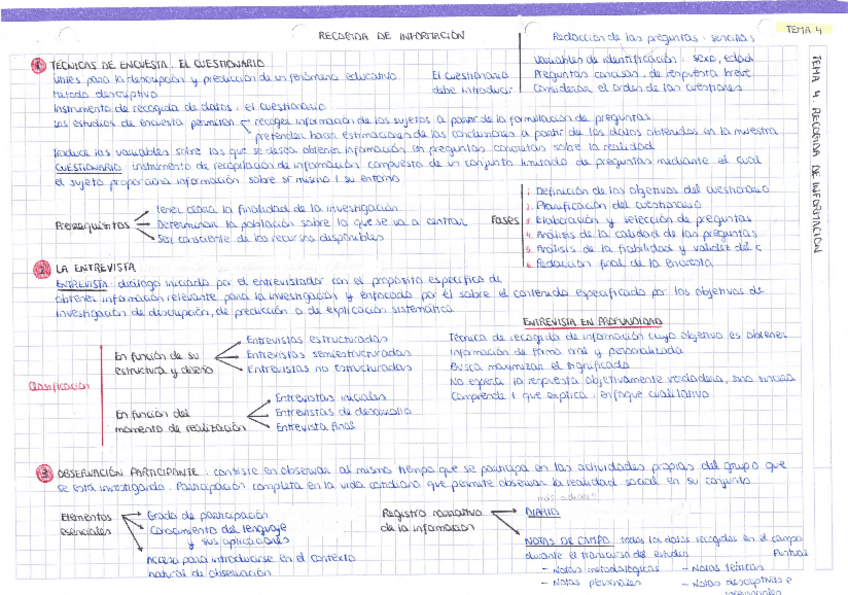 RECOGIDA DE INFORMACIÓN
TEMA 4
TEMA 4. RECOGIDA DE INFORMACIÓN
1 TÉCNICAS DE ENCUESTA. EL CUESTIONARIO
Útiles para la descripción y predicción de un fenómeno educativo
Método descriptivo
Instrumento de recogida de datos: el cuestionario
El cuestionario
debe introducir
Redacción de las preguntas: sencillas
Variables de identificación: sexo, edad
Preguntas concisas, de respuesta breve
Considerar el orden de las cuestiones
Los estudios de encuesta permiten
recoger información de los sujetos a partir de la formulación de preguntas
pretenden hacer estimaciones de las conclusiones a partir de los datos obtenidos en la muestra
Traduce las variables sobre las que se desea obtener información en preguntas concretas sobre la realidad
CUESTIONARIO: instrumento de recopilación de información compuesto de un conjunto limitado de preguntas mediante el cual
el sujeto proporciona información sobre sí mismo / su entorno
Prerrequisitos
Tener clara la finalidad de la investigación
Determinar la población sobre la que se va a centrar
Ser consciente de los recursos disponibles
Fases
1. Definición de los objetivos del cuestionario
2. Planificación del cuestionario
3. Elaboración y selección de preguntas
4. Análisis de la calidad de las preguntas
5. Análisis de la fiabilidad y validez del c
6. Redacción final de la encuesta
2 LA ENTREVISTA
ENTREVISTA: diálogo iniciado por el entrevistador con el propósito específico de
obtener información relevante para la investigación y enfocado por él sobre el contenido especificado por los objetivos de
investigación de descripción, de predicción o de explicación sistemática
Clasificación
En función de su
estructura y diseño
Entrevistas estructuradas
Entrevistas semiestructuradas
Entrevistas no estructuradas
En función del
momento de realización
Entrevistas iniciales
Entrevistas de desarrollo
Entrevista final
ENTREVISTA EN PROFUNDIDAD
Técnica de recogida de información cuyo objetivo es obtener
información de forma oral y personalizada
Busca maximizar el significado
No espera la respuesta objetivamente verdadera, sino sincera
Comprende + que explica: enfoque cualitativo
3 OBSERVACIÓN PARTICIPANTE: consiste en observar al mismo tiempo que se participa en las actividades propias del grupo que
se está investigando. Participación completa en la vida cotidiana que permite observar la realidad social en su conjunto
Elementos
esenciales
Grado de participación
Conocimiento del lenguaje
y sus aplicaciones
Acceso para introducirse en el contexto
natural de observación
Registro narrativo
de la información
DIARIO
NOTAS DE CAMPO: todos los datos recogidos en el campo
durante el transcurso del estudio
Puntual
- Notas metodológicas
- Notas teóricas
- Notas personales
- Notas descriptivas e